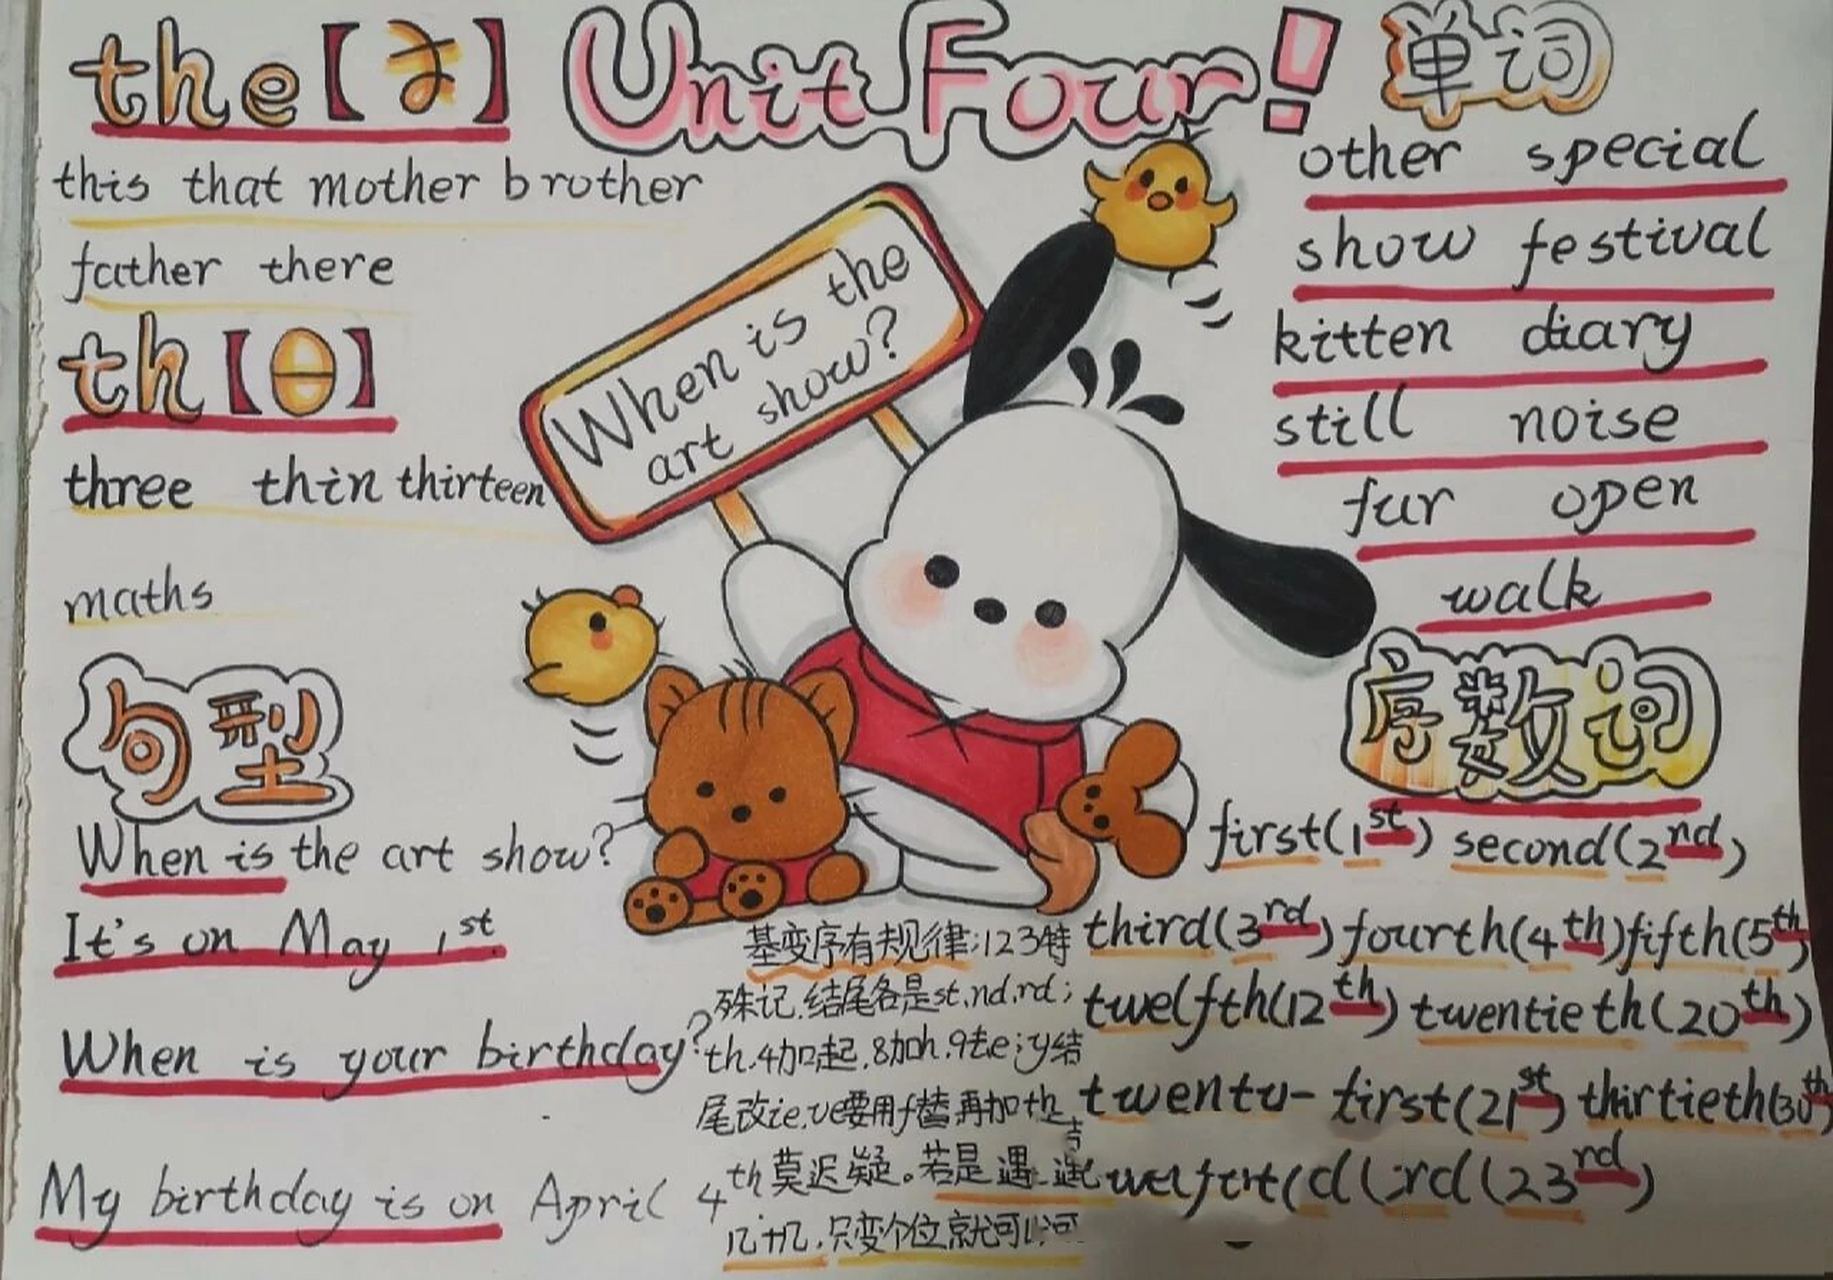 the【ə】
this that mother brother
father there
th【θ】
three thin thirteen
maths
句型
When is the art show?
It's on May 1st.
When is your birthday?
My birthday is on April 4th.
Unit Four!
When is the
art show?
基变序有规律:123特
殊记.结尾各是st.nd.rd;
th.4加起.8加h.9去e;y结
尾改ie.ve要用f替再加th
莫迟疑。若是遇
几十几.只变个位就可以
单词
other special
show festival
kitten diary
still noise
fur open
walk
序数词
first(1st) second(2nd)
third(3rd) fourth(4th) fifth(5th)
twelfth(12th) twentieth(20th)
first(21st) thirtieth(30th)
(23rd)